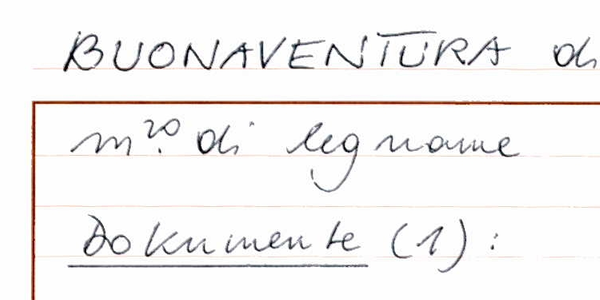 BUONAVENTURA di
m.ro di legname
Dokumente (1):